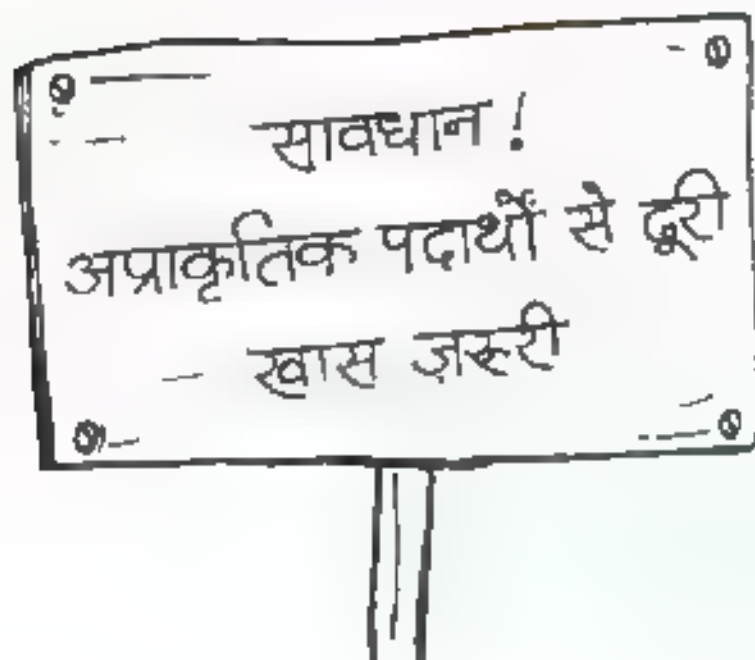 सावधान !
अप्राकृतिक पदार्थों से दूरी
खास ज़रूरी